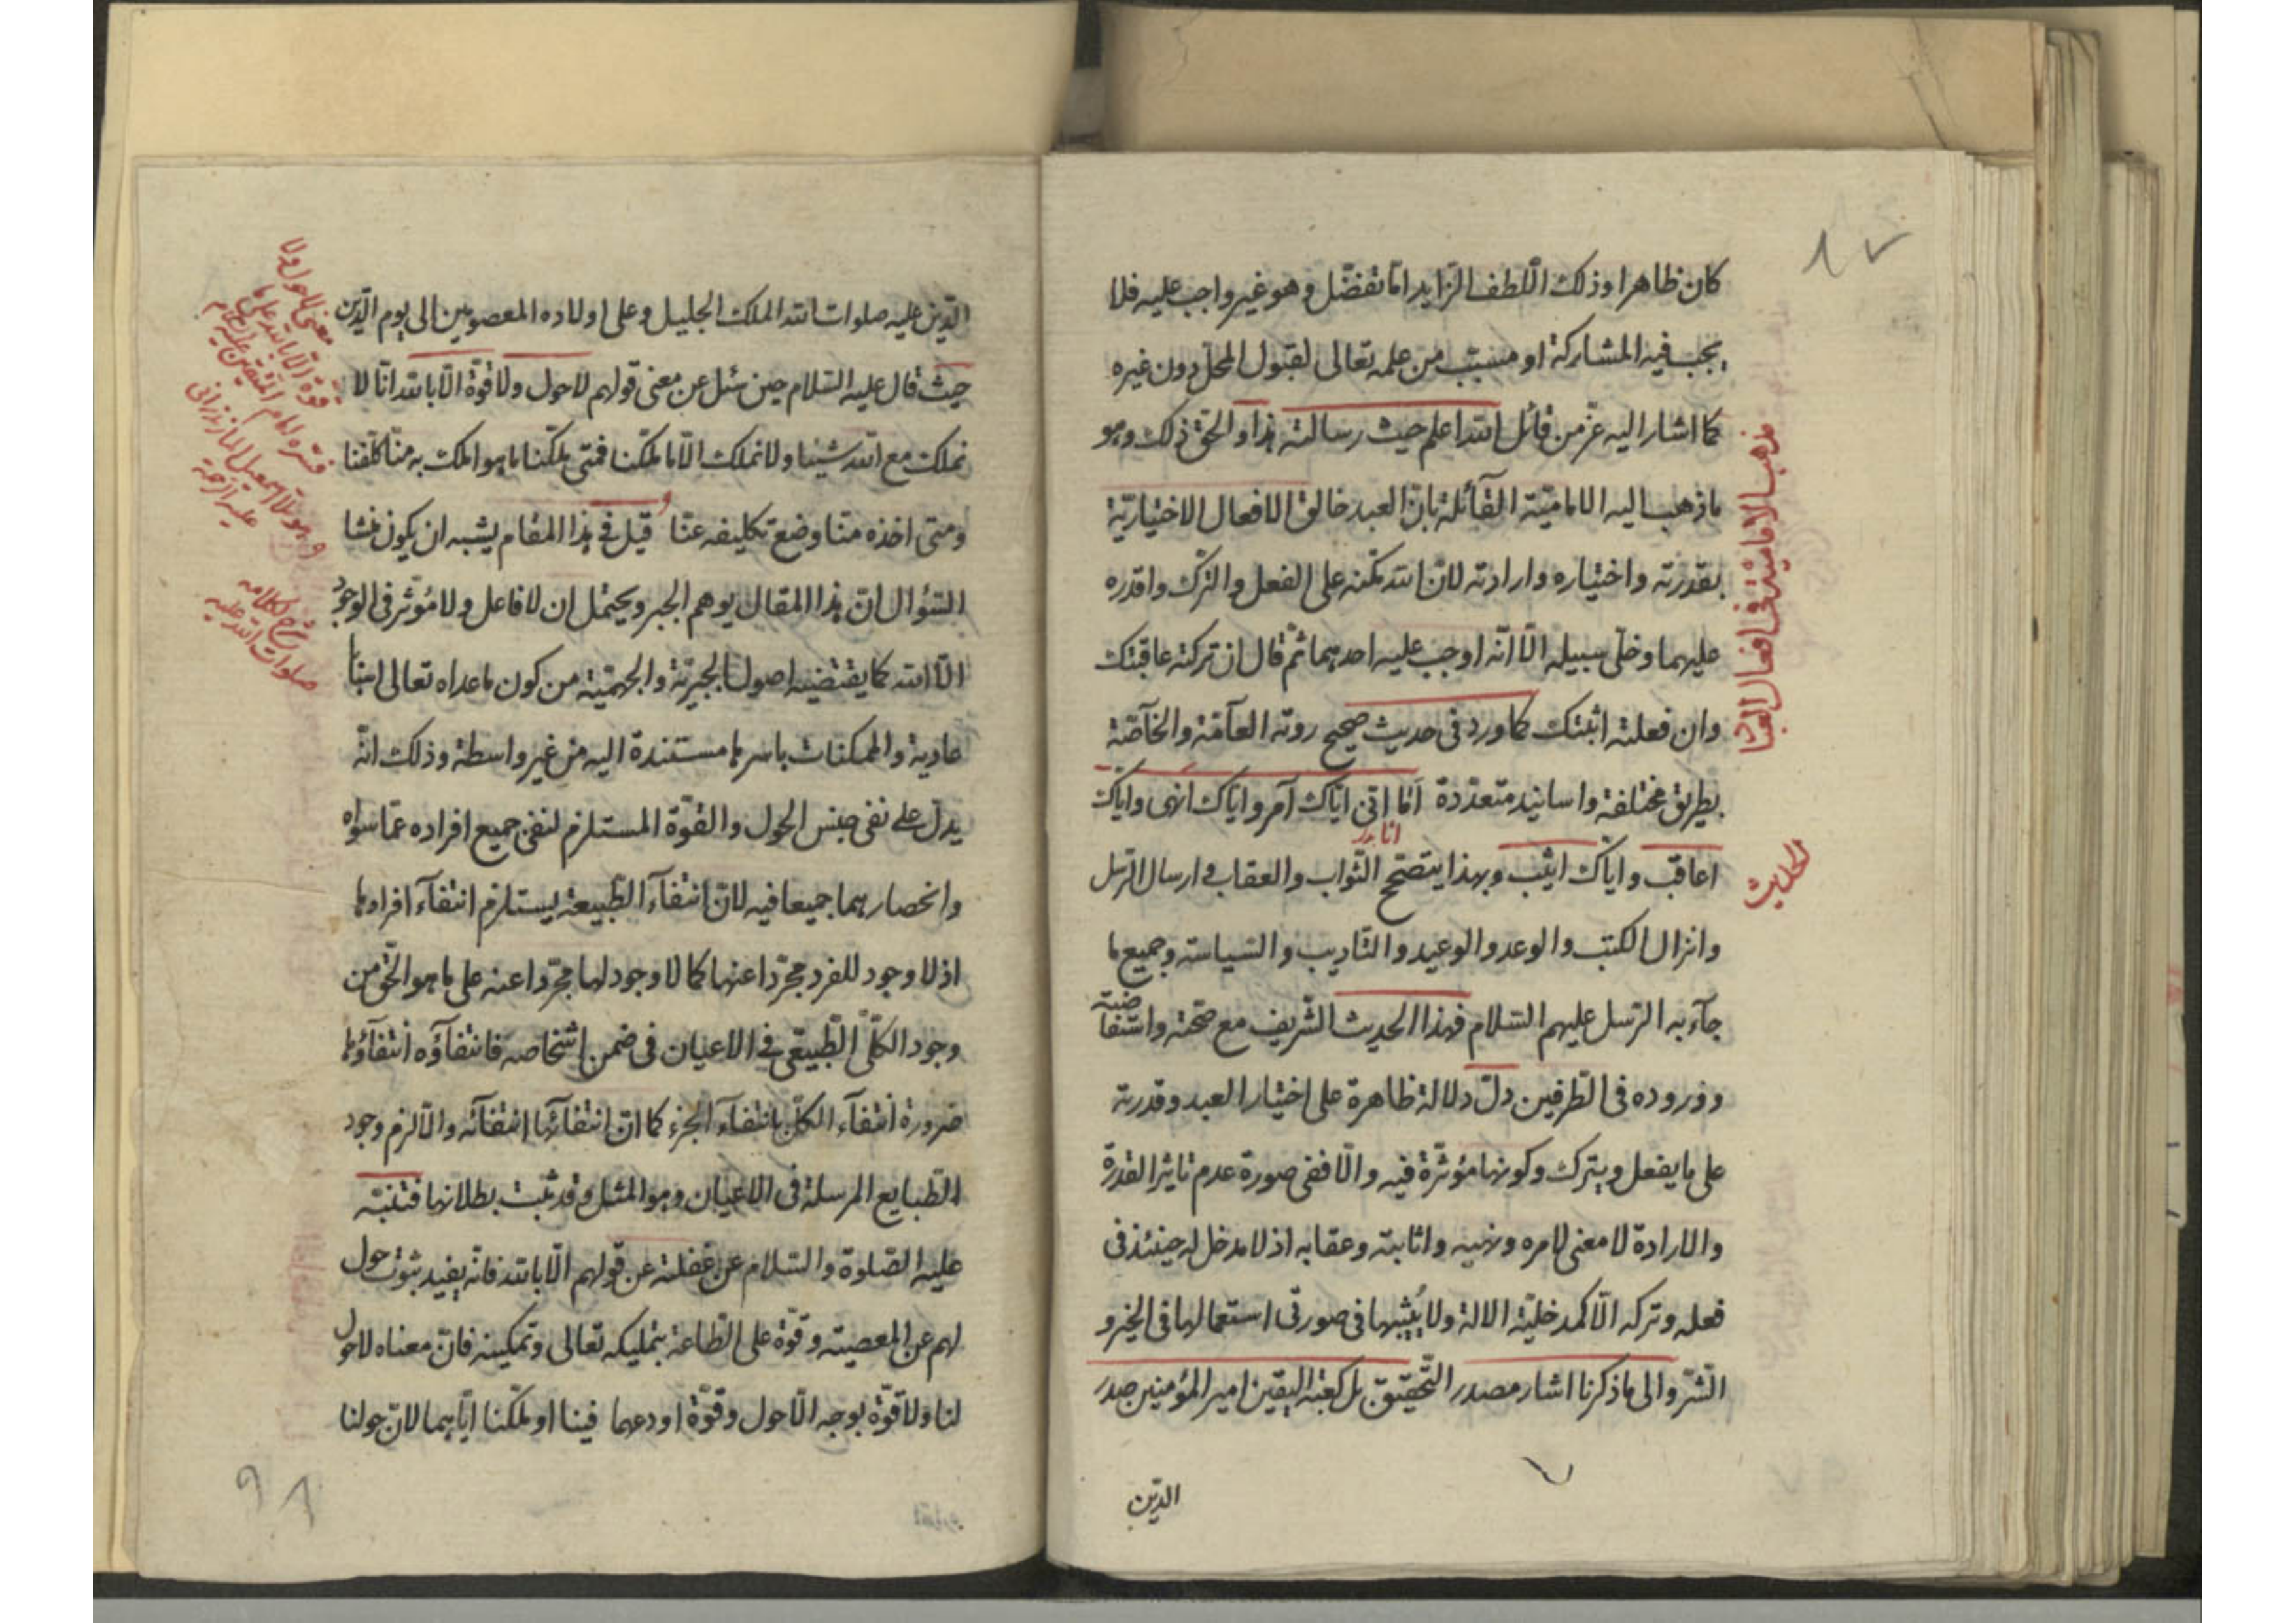 كان ظاهرا وذلك اللطف الزايد اما تفضل وهو غير واجب عليه فلا
يجب فيه المشاركة او مسبب من علمه تعالى لقبول المحل دون غيره
كما اشار اليه عز من قائل الله اعلم حيث رسالته هذا والحق ذلك وهو
ما ذهب اليه الامامية القائلة بان العبد خالق الافعال الاختيارية
بقدرته واختياره وارادته لان الله مكنه على الفعل والترك واقدره
عليهما وخلى سبيله الا انه اوجب عليه احدهما ثم قال ان تركته عاقبتك
وان فعلته اثبتك كما ورد فى حديث صحيح روته العآمة والخآصة
بطريق مختلفة واسانيد متعددة اما انى اياك آمر واياك انهى واياك
اعاقب واياك اثيب وبهذا يتضح الثواب والعقاب فى ارسال الرسل
وانزال الكتب والوعد والوعيد والتاديب والسياسة وجميع ما
جآء به الرسل عليهم السلام فهذا الحديث الشريف مع صحته واستفاضته
ووروده فى الطرفين دل دلالة ظاهرة على اختيار العبد وقدرته
على ما يفعل ويترك وكونها مؤثرة فيه والا ففى صورة عدم تاثير القدرة
والارادة لا معنى لامره ونهيه واثابته وعقابه اذ لا مدخل له حينئذ فى
فعله وتركه الا كمدخلية الالة ولا يثيبها فى صورتى استعمالها فى الخير و
الشر والى ما ذكرنا اشار مصدر التحقيق بل كعبة اليقين امير المؤمنين صدر
الدين
مذهب الامامية فى افعال العباد
الحديث
الدين عليه صلوات الله الملك الجليل وعلى اولاده المعصومين الى يوم الدين
حيث قال عليه السلام حين سئل عن معنى قولهم لا حول ولا قوة الا بالله انا لا
نملك مع الله شيئا ولا نملك الا ما ملكنا فمتى ملكنا ما هو املك به منا كلفنا
ومتى اخذه منا وضع تكليفه عنا قيل فى هذا المقام يشبه ان يكون منشا
السؤال ان هذا المقال يوهم الجبر ويحتمل ان لا فاعل ولا مؤثر فى الوجود
الا الله كما يقتضيه اصول الجبرية والجهمية من كون ما عداه تعالى اسبابا
عادية والممكنات باسرها مستندة اليه من غير واسطة وذلك انه
يدل على نفى جنس الحول والقوة المستلزم لنفى جميع افراده عما سواه
وانحصارهما جميعا فيه لان انتفآء الطبيعة يستلزم انتفآء افرادها
اذ لا وجود للفرد مجردا عنها كما لا وجود لها مجردا عنه على ما هو الحق من
وجود الكلى الطبيعى فى الاعيان فى ضمن اشخاصه فانتفآؤه انتفآؤها
ضرورة انتفآء الكل بانتفآء الجزء كما ان انتفآئها انتفآئه والا لزم وجود
الطبايع المرسلة فى الاعيان وهو المثل وقد ثبت بطلانها فتنبه
عليه الصلوة والسلام عن غفلته عن قولهم الا بالله فانه يفيد ثبوت حول
لهم عن المعصية وقوة على الطاعة بتمليكه تعالى وتمكينه فان معناه لا حول
لنا ولا قوة بوجه الا حول وقوة اودعهما فينا او ملكنا اياهما لان حولنا
معنى لا حول ولا
قوة الا بالله على ما
فسره امام المتقين عليه السلام
وهو لملا اسمعيل المازندرانى
عليه الرحمة
شرح لكلامه
صلوات الله عليه